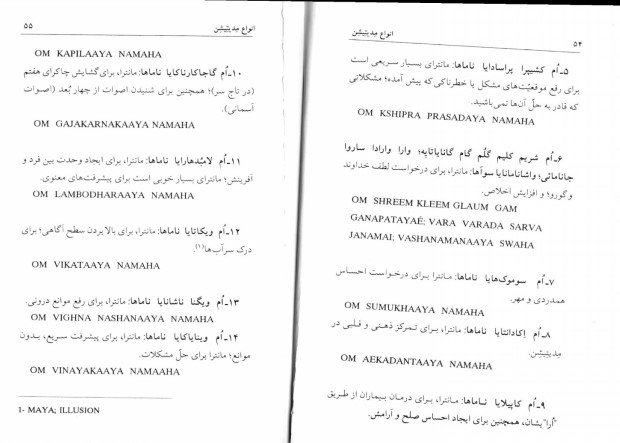 ۵۴
انواع مِدیتیشن
۵ـ اُم کشیپرا پراسادایا ناماها: مانترای بسیار سریعی است
برای رفع موقعیّت‌های مشکل یا خطرناکی که پیش آمده؛ مشکلاتی
که قادر به حلّ آن‌ها نمی‌باشید.
OM KSHIPRA PRASADAYA NAMAHA
۶ـ اُم شریم کلیم گلُم گام گاناپاتایِه؛ وارا وارادا ساروا
جانامائی؛ واشانامانایا سوآها: مانترا، برای درخواست لطف خداوند
و گورو؛ و افزایش اخلاص.
OM SHREEM KLEEM GLAUM GAM
GANAPATAYAÉ; VARA VARADA SARVA
JANAMAI; VASHANAMANAAYA SWAHA
۷ـ اُم سوموکهایا ناماها: مانترا برای درخواست احساس
همدردی و مهر.
OM SUMUKHAAYA NAMAHA
۸ـ اُم اِکادانتایا ناماها: مانترا، برای تمرکز ذهنی و قلبی در
مِدیتیشِن.
OM AEKADANTAAYA NAMAHA
۹ـ اُم کاپیلایا ناماها: مانترا، برای درمان بیماران از طریق
"اُرا"یشان، همچنین برای ایجاد احساس صلح و آرامش.
انواع مِدیتیشن
۵۵
OM KAPILAAYA NAMAHA
۱۰ـ اُم گاجاکارناکایا ناماها: مانترا، برای گشایش چاکرای هفتم
(در تاج سر)؛ همچنین برای شنیدن اصوات از چهار بُعد (اصوات
آسمانی).
OM GAJAKARNAKAAYA NAMAHA
۱۱ـ اُم لامبُدهارایا ناماها: مانترا، برای ایجاد وحدت بین فرد و
آفرینش؛ مانترای بسیار خوبی است برای پیشرفت‌های معنوی.
OM LAMBODHARAAYA NAMAHA
۱۲ـ اُم ویکاتایا ناماها: مانترا، برای بالا بردن سطح آگاهی؛ برای
درک سرآب‌ها(۱).
OM VIKATAAYA NAMAHA
۱۳ـ اُم ویگنا ناشانایا ناماها: مانترا، برای رفع موانع درونی.
OM VIGHNA NASHANAAYA NAMAHA
۱۴ـ اُم وینایاکایا ناماها: مانترا، برای پیشرفت سریع، بدون
موانع؛ مانترا برای حلّ مشکلات.
OM VINAYAKAAYA NAMAAHA
1- MAYA; ILLUSION